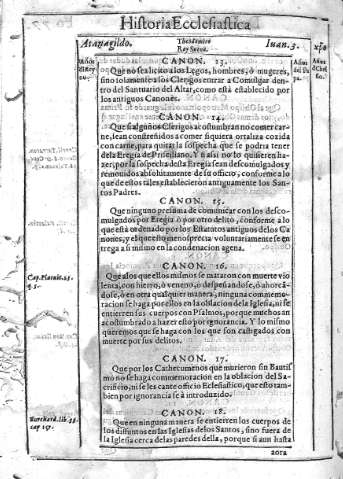 Historia Ecclesiastica
Atanagildo.
Theodomiro
Rey Suevo.
Iuan. 3.
Años
CANON. 13.
Que no sea licito a los Legos, hombres, ò mugeres,
sino solamente a los Clerigos entrar a Comulgar den-
tro del Santuario del Altar, como está establecido por
los antiguos Canones.
CANON. 14.
Que si algunos Clerigos acostumbran no comer car-
ne, sean constreñidos a comer siquiera cosa cozida
con carne, para quitar la sospecha que se podria tener
de la Eregia de Prisciliano. Y si assi no lo quisieren ha-
zer, por la sospecha desta Eregia sean descomulgados y
removidos absolutamente de su officio, conforme a lo
que destos tales establecieron antiguamente los San-
tos Padres.
CANON. 15.
Que ninguno presuma de comunicar con los desco-
mulgados por Eregia ò por otro delito, conforme a lo
que està ordenado por los Estatutos antiguos de los Ca-
nones, y el que esto menosprecia voluntariamente se en-
trega a si mismo en la condenacion agena.
Cap. Placuit. 23.
q. 5.
CANON. 16.
Que a los que ellos mismos se mataron con muerte vio
lenta, con hierro, ò veneno, ò despeñandose, ò ahorcã-
dose, ò en otra qualquier manera, ninguna commemo-
racion se haga por ellos en la oblacion de la Iglesia, ni se
entierren sus cuerpos con Psalmos, porque muchos an
acostumbrado a hazer esto por ignorancia. Y lo mismo
queremos que se haga con los que son castigados con
muerte por sus delitos.
CANON. 17.
Que por los Cathecumenos que murieron sin Bautis
mo no se haga commemoracion en la oblacion del Sa-
crificio, ni se les cante officio Eclesiastico, que esto tam
bien por ignorancia se à introduzido.
Burchard. lib.
cap. 151.
CANON. 18.
Que en ninguna manera se entierren los cuerpos de
los difuntos en las Iglesias de los Santos, sino fuera de
la Iglesia cerca de las paredes della, porque si aun hasta
aora